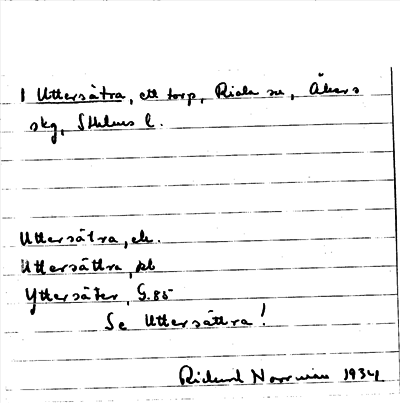 1 Uttersätra, ett torp, Riala sn, Åkers
skg, Sthlms l.
Uttersätra, ek.
Uttersättra, jbl
Yttersäter, G. 85
Se Uttersättra!
Rickard 1934